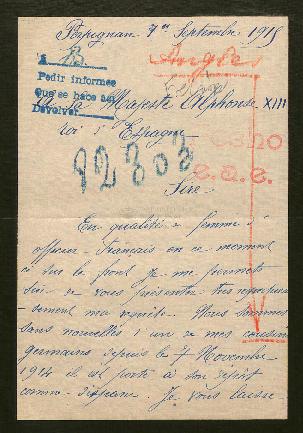 Perpignan 7 Septembre 1915
Angles
B.
Pedir informes
Que se hace así
Devolver
A sa Majesté Alphonse XIII
roi d'Espagne
92303
e.a.e.
Sire
En qualité de femme d'
officier français en ce moment
ici sur le front je me permets
de vous présenter très respectueu
sement ma requête. Nous sommes
sans nouvelles d'un de mes cousins
germains depuis le 7 Novembre
1914 il est porté à son dépôt
comme disparu. Je vous